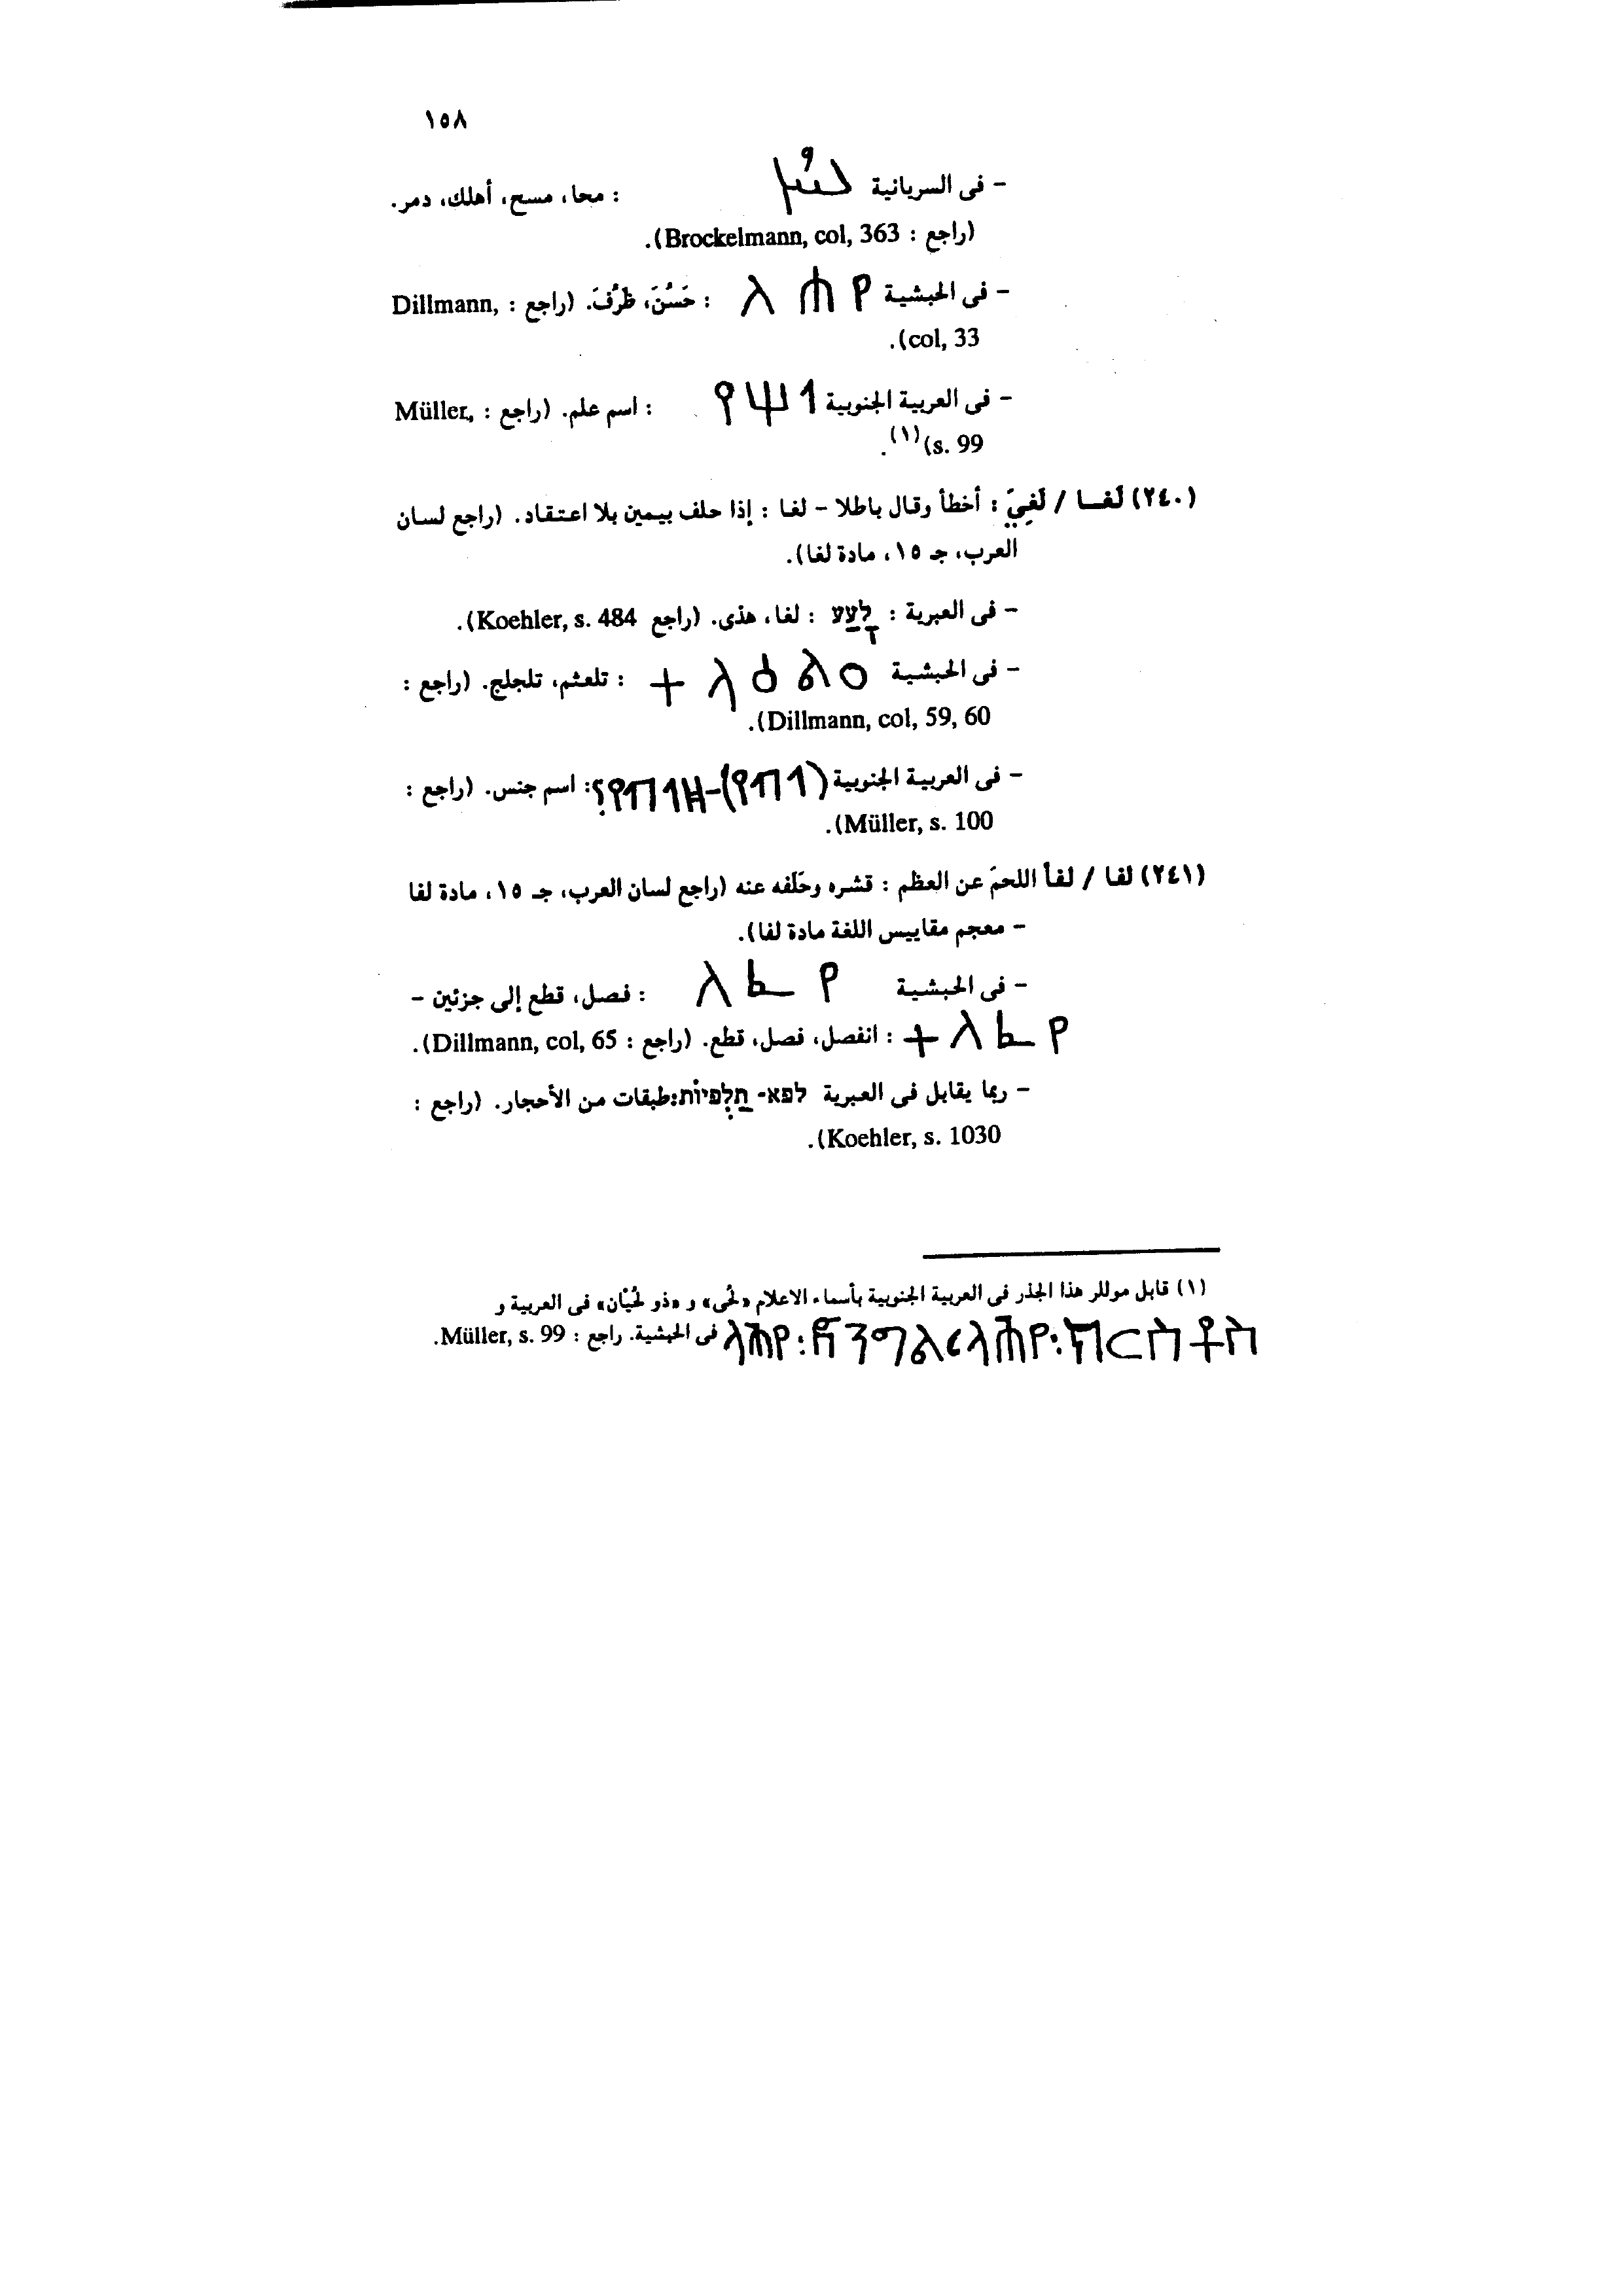 ١٥٨
- فى السريانية : محا، مسح، أهلك، دمر.
(راجع : Brockelmann, col, 363).
- فى الحبشية ለሐየ : حَسُنَ، ظَرُفَ. (راجع : Dillmann,
col, 33).
- فى العربية الجنوبية 𐩡𐩢𐩺 : اسم علم. (راجع : Müller,
s. 99)(١).
(٢٤٠) لَغـا / لَغِيَ : أخطأ وقال باطلا - لغا : إذا حلف بيمين بلا اعتقاد. (راجع لسان
العرب، جـ ١٥، مادة لغا).
- فى العبرية : לָעַע : لغا، هذى. (راجع Koehler, s. 484).
- فى الحبشية : تلعثم، تلجلج. (راجع :
Dillmann, col, 59, 60).
- فى العربية الجنوبية : اسم جنس. (راجع :
Müller, s. 100).
(٢٤١) لفا / لفأ اللحمَ عن العظم : قشره وحَلَفه عنه (راجع لسان العرب، جـ ١٥، مادة لفا
- معجم مقاييس اللغة مادة لفا).
- فى الحبشية ለፈየ : فصل، قطع إلى جزئين -
ተለፈየ : انفصل، فصل، قطع. (راجع : Dillmann, col, 65).
- ربما يقابل فى العبرية לפא- תַלְפִיוֹת: طبقات من الأحجار. (راجع :
Koehler, s. 1030).
(١) قابل موللر هذا الجذر فى العربية الجنوبية بأسماء الاعلام «لحُى» و «ذو لحُيْان» فى العربية و
فى الحبشية. راجع : Müller, s. 99.